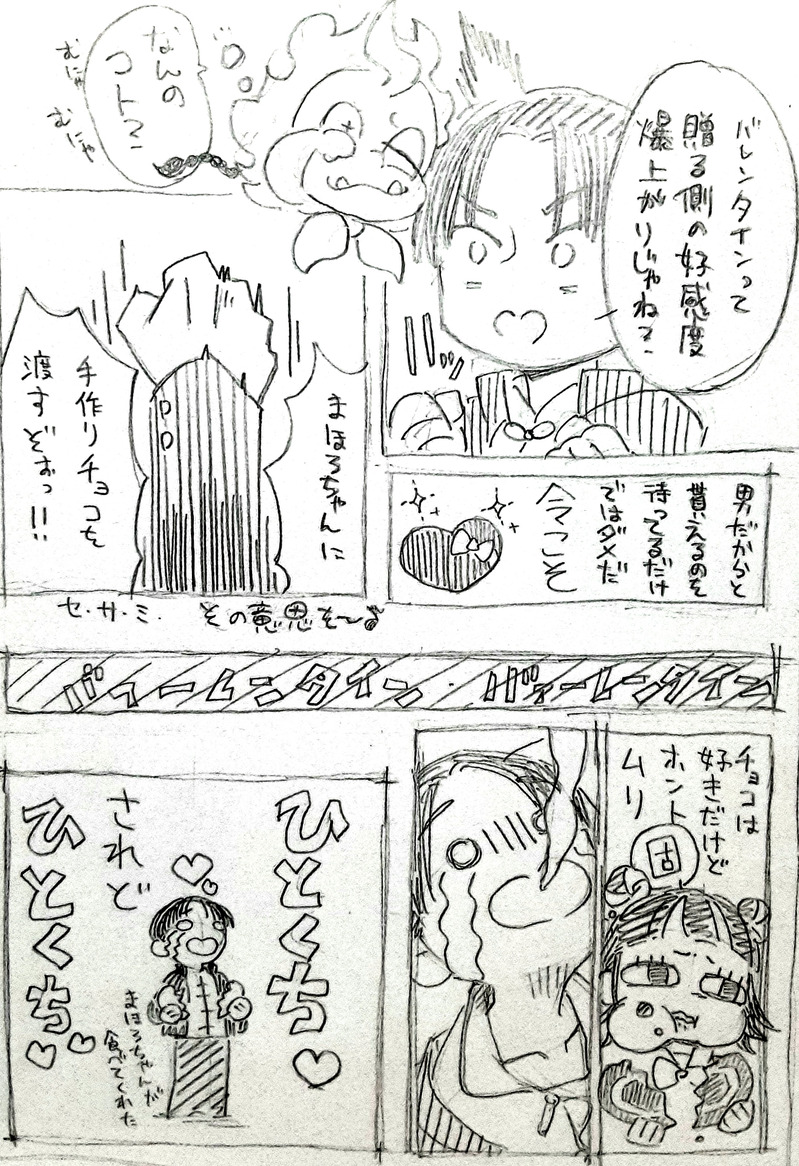 バレンタインって
贈る側の好感度
爆上がりじゃね?
なんの
コト?
むにゃ
むにゃ
男だからと
貰えるのを
待ってるだけ
ではダメだ
今こそ
まほろちゃんに
手作りチョコを
渡すぞぉっ!!
セ・サ・ミ・
その意思を〜♪
バィーレンタイン・バィーレンタイン
チョコは
好きだけど
ホント
ムリ
固
ひとくち♡
されど
ひとくち♡♡
まほろちゃんが
食べてくれた